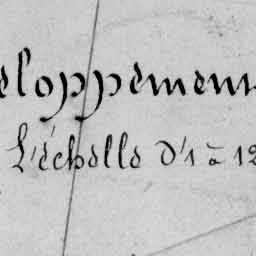 eloppemen
L'échelle d'1 à 12